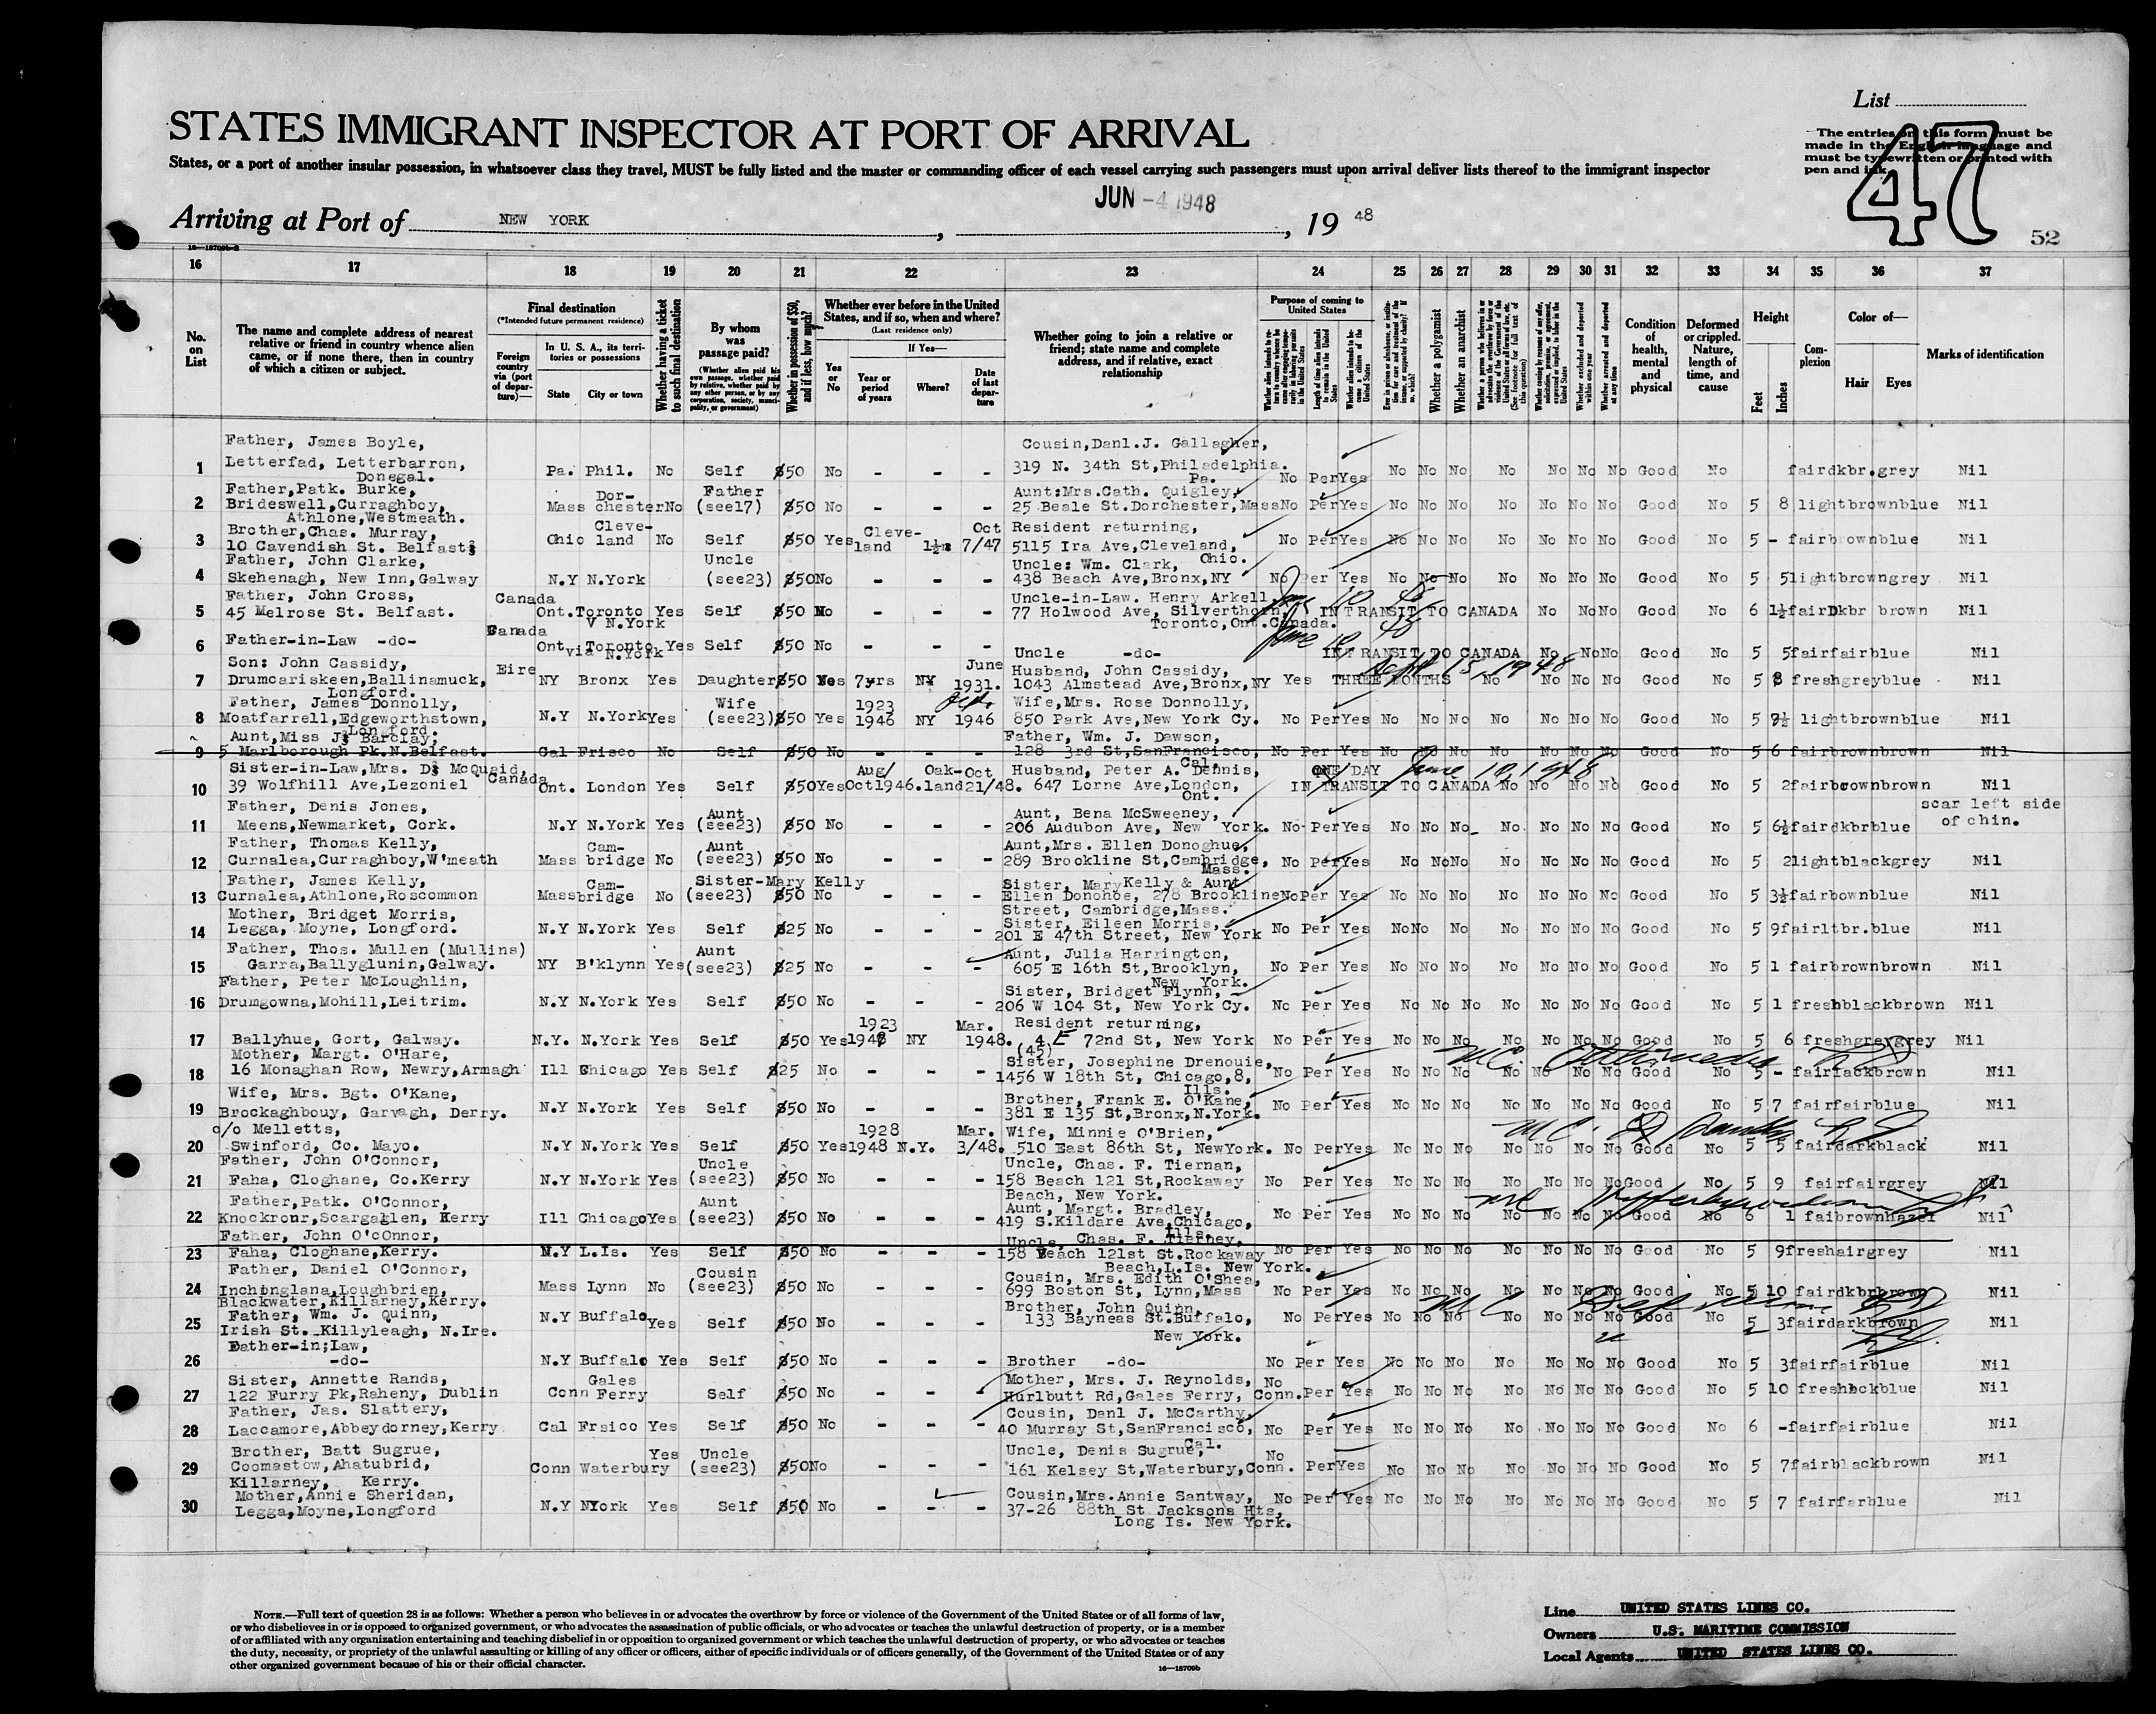 List
STATES IMMIGRANT INSPECTOR AT PORT OF ARRIVAL
The entries on this form must be
made in the English language and
must be typewritten or printed with
pen and ink.
47
States, or a port of another insular possession, in whatsoever class they travel, MUST be fully listed and the master or commanding officer of each vessel carrying such passengers must upon arrival deliver lists thereof to the immigrant inspector
JUN -4 1948
Arriving at Port of NEW YORK , , 19 48
52
16 17 18 19 20 21 22 23 24 25 26 27 28 29 30 31 32 33 34 35 36 37
No. on List
The name and complete address of nearest relative or friend in country whence alien came, or if none there, then in country of which a citizen or subject.
Final destination
(*Intended future permanent residence)
Foreign country via (port of departure)—
In U. S. A., its territories or possessions
State City or town
Whether having a ticket to such final destination
By whom was passage paid?
(Whether alien paid his own passage, whether paid by relative, whether paid by any other person, or by any corporation, society, municipality, or government)
Whether in possession of $50, and if less, how much?
Whether ever before in the United States, and if so, when and where?
(Last residence only)
Yes or No
If Yes—
Year or period of years Where? Date of last departure
Whether going to join a relative or friend; state name and complete address, and if relative, exact relationship
Purpose of coming to United States
Whether a polygamist
Whether an anarchist
Condition of health, mental and physical
Deformed or crippled. Nature, length of time, and cause
Height
Feet Inches
Complexion
Color of—
Hair Eyes
Marks of identification
Father, James Boyle, Cousin,Danl.J. Gallagher,
1 Letterfad, Letterbarron, Pa. Phil. No Self $50 No - - - 319 N. 34th St,Philadelphia. No Per Yes No No No No No No No Good No fair dkbr. grey Nil
Donegal. Pa.
Father,Patk. Burke, Dor- Father Aunt:Mrs.Cath. Quigley,
2 Brideswell,Curraghboy, Mass chester No (see17) $50 No - - - 25 Beale St.Dorchester,Mass No Per Yes No No No No No No No Good No 5 8 light brown blue Nil
Athlone,Westmeath.
Brother,Chas. Murray, Cleve- Cleve- Oct Resident returning,
3 10 Cavendish St. Belfast Ohio land No Self $50 Yes land 1½m 7/47 5115 Ira Ave,Cleveland, No Per Yes No No No No No No No Good No 5 - fair brown blue Nil
Ohio.
Father, John Clarke, Uncle Uncle: Wm. Clark,
4 Skehenagh, New Inn,Galway N.Y N.York (see23) $50 No - - - 438 Beach Ave,Bronx,NY No Per Yes No No No No No No No Good No 5 5 light brown grey Nil
Father, John Cross, Canada Uncle-in-Law. Henry Arkell June 10 48
5 45 Melrose St. Belfast. Ont. Toronto Yes Self $50 No - - - 77 Holwood Ave, Silverthorn, IN TRANSIT TO CANADA No No No Good No 6 1½ fair Dkbr brown Nil
V N.York Toronto,Ont.Canada.
6 Father-in-Law -do- Canada Ont Toronto Yes Self $50 No - - - Uncle -do- June 10 48 IN TRANSIT TO CANADA No No No Good No 5 5 fair fair blue Nil
via N.York
Son: John Cassidy, Eire June Husband, John Cassidy, Sept 15, 1948
7 Drumcariskeen,Ballinamuck, NY Bronx Yes Daughter $50 Yes 7yrs NY 1931. 1043 Almstead Ave,Bronx,NY Yes THREE MONTHS No No No No Good No 5 8 fresh grey blue Nil
Longford.
Father, James Donnolly, Wife 1923 Wife, Mrs. Rose Donnolly,
8 Moatfarrell,Edgeworthstown, N.Y N.York Yes (see23) $50 Yes 1946 NY 1946 850 Park Ave,New York Cy. No Per Yes No No No No No No No Good No 5 9½ light brown blue Nil
Longford.
Aunt,Miss J. Barclay, Father, Wm. J. Dawson,
9 5 Marlborough Pk.N.Belfast. Cal Frisco No Self $50 No - - - 128 3rd St,SanFrancisco, No Per Yes No No No No No No No Good No 5 6 fair brown brown Nil
Cal.
Sister-in-Law,Mrs. D. McQuaid, Canada Aug/ Oak- Oct Husband, Peter A. Dennis, ONE DAY June 10, 1948
10 39 Wolfhill Ave,Lezoniel Ont. London Yes Self $50 Yes Oct1946. land 21/48. 647 Lorne Ave,London, IN TRANSIT TO CANADA No No No No Good No 5 2 fair brown brown Nil
Ont.
Father, Denis Jones, Aunt Aunt, Bena McSweeney, scar left side
11 Meens,Newmarket, Cork. N.Y N.York Yes (see23) $50 No - - - 206 Audubon Ave, New York. No Per Yes No No No No No No No Good No 5 6½ fair dkbr blue of chin.
Father, Thomas Kelly, Cam- Aunt Aunt,Mrs. Ellen Donoghue,
12 Curnalea,Curraghboy,W'meath Mass bridge No (see23) $50 No - - - 289 Brookline St,Cambridge, No Per Yes No No No No No No No Good No 5 2 light black grey Nil
Mass.
Father, James Kelly, Cam- Sister-Mary Kelly Sister, Mary Kelly & Aunt
13 Curnalea,Athlone,Roscommon Mass bridge No (see23) $50 No - - - Ellen Donohoe, 278 Brookline No Per Yes No No No No No No No Good No 5 3½ fair bownblue Nil
Street, Cambridge,Mass.
Mother, Bridget Morris, Sister, Eileen Morris,
14 Legga, Moyne, Longford. N.Y N.York Yes Self $25 No - - - 201 E 47th Street, New York No Per Yes No No No No No No No Good No 5 9 fair ltbr. blue Nil
Father, Thos. Mullen (Mullins) Aunt Aunt, Julia Harrington,
15 Garra,Ballyglunin,Galway. NY B'klynn Yes (see23) $25 No - - - 605 E 16th St,Brooklyn, No Per Yes No No No No No No No Good No 5 1 fair brown brown Nil
New York.
Father, Peter McLoughlin, Sister, Bridget Flynn,
16 Drumgowna,Mohill,Leitrim. N.Y N.York Yes Self $50 No - - - 206 W 104 St, New York Cy. No Per Yes No No No No No No No Good No 5 1 fresh black brown Nil
1923 Mar. Resident returning,
17 Ballyhue, Gort, Galway. N.Y. N.York Yes Self $50 Yes 1948 NY 1948. 4 E 72nd St, New York No Per Yes No No No No No No No Good No 5 6 fresh grey grey Nil
(45)
Mother, Margt. O'Hare, Sister, Josephine Drenouie,
18 16 Monaghan Row, Newry,Armagh Ill Chicago Yes Self $25 No - - - 1456 W 18th St, Chicago,8, No Per Yes No No No No No No No Good No 5 - fair fack brown Nil
Ills.
Wife, Mrs. Bgt. O'Kane, Brother, Frank E. O'Kane,
19 Brockaghbouy, Garvagh, Derry. N.Y N.York Yes Self $50 No - - - 381 E 135 St,Bronx,N.York. No Per Yes No No No No No No No Good No 5 7 fair fair blue Nil
c/o Melletts, 1928 Mar. Wife, Minnie O'Brien,
20 Swinford, Co. Mayo. N.Y N.York Yes Self $50 Yes 1948 N.Y. 3/48. 510 East 86th St, NewYork. No Per Yes No No No No No No No Good No 5 5 fair dark black Nil
Father, John O'Connor, Uncle Uncle, Chas. F. Tiernan,
21 Faha, Cloghane, Co.Kerry N.Y N.York Yes (see23) $50 No - - - 158 Beach 121 St,Rockaway No Per Yes No No No No No No No Good No 5 9 fair fair grey Nil
Beach, New York.
Father,Patk. O'Connor, Aunt Aunt, Margt. Bradley,
22 Knockronr,Scargaglen, Kerry Ill Chicago Yes (see23) $50 No - - - 419 S.Kildare Ave,Chicago, No Per Yes No No No No No No No Good No 6 1 fai brown hazel Nil
Ills.
Father, John O'cOnnor, Uncle, Chas. F. Tierney,
23 Faha, Cloghane,Kerry. N.Y L.Is. Yes Self $50 No - - - 158 Beach 121st St.Rockaway No Per Yes No No No No No No No Good No 5 9 fresh air grey Nil
Beach,L.Is. New York.
Father, Daniel O'Connor, Cousin Cousin, Mrs. Edith O'Shea,
24 Inchinglana,Loughbrien, Mass Lynn No (see23) $50 No - - - 699 Boston St, Lynn,Mass No Per Yes No No No No No No No Good No 5 10 fair dkbr brown Nil
Blackwater,Killarney,Kerry.
Father, Wm. J. Quinn, Brother, John Quinn,
25 Irish St. Killyleagh, N.Ire. N.Y Buffalo Yes Self $50 No - - - 133 Bayneas St.Buffalo, No Per Yes No No No No No No No Good No 5 3 fair dark brown Nil
New York.
Father-in;Law,
26 -do- N.Y Buffalo Yes Self $50 No - - - Brother -do- No Per Yes No No No No No No No Good No 5 3 fair fair blue Nil
Sister, Annette Rands, Gales Mother, Mrs. J. Reynolds,
27 122 Furry Pk,Raheny, Dublin Conn Ferry Self $50 No - - - Hurlbutt Rd,Gales Ferry, Conn. No Per Yes No No No No No No No Good No 5 10 fresh bckblue Nil
Father, Jas. Slattery, Cousin, Danl J. McCarthy,
28 Laccamore,Abbeydorney,Kerry Cal Frsico Yes Self $50 No - - - 40 Murray St,SanFrancisco, No Per Yes No No No No No No No Good No 6 - fair fair blue Nil
Cal.
Brother, Batt Sugrue, Yes Uncle Uncle, Denis Sugrue,
29 Coomastow,Ahatubrid, Conn Waterbury (see23) $50 No - - - 161 Kelsey St,Waterbury,Conn. No Per Yes No No No No No No No Good No 5 7 fair black brown Nil
Killarney, Kerry.
Mother,Annie Sheridan, Cousin,Mrs.Annie Santway,
30 Legga,Moyne,Longford N.Y NYork Yes Self $50 No - - - 37-26 88th St Jacksons Hts, No Per Yes No No No No No No No Good No 5 7 fair far blue Nil
Long Is. New York.
NOTE.—Full text of question 28 is as follows: Whether a person who believes in or advocates the overthrow by force or violence of the Government of the United States or of all forms of law,
or who disbelieves in or is opposed to organized government, or who advocates the assassination of public officials, or who advocates or teaches the unlawful destruction of property, or is a member
of or affiliated with any organization entertaining and teaching disbelief in or opposition to organized government or which teaches the unlawful destruction of property, or who advocates or teaches
the duty, necessity, or propriety of the unlawful assaulting or killing of any officer or officers, either of specific individuals or of officers generally, of the Government of the United States or of any
other organized government because of his or their official character.
16—18709b
Line UNITED STATES LINES CO.
Owners U.S. MARITIME COMMISSION
Local Agents UNITED STATES LINES CO.